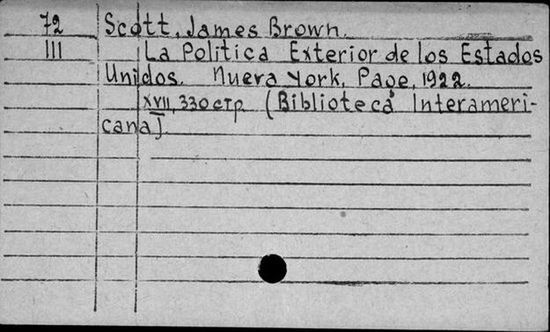 72 Scott, James Brown.
III La Politica Exterior de los Estados
Unidos. Nueva York, Page, 1922.
XVII, 330 стр. (Biblioteca Interameri-
cana)